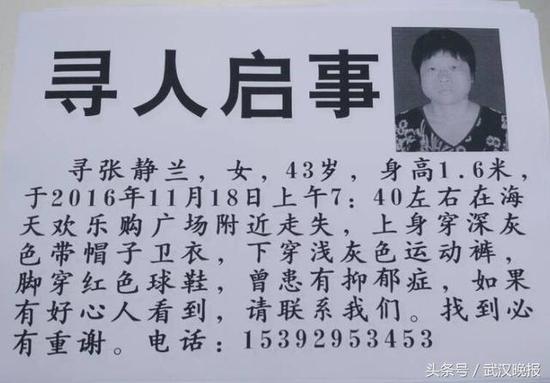 寻人启事
寻张静兰，女，43岁，身高1.6米，
于2016年11月18日上午7：40左右在海
天欢乐购广场附近走失，上身穿深灰
色带帽子卫衣，下穿浅灰色运动裤，
脚穿红色球鞋，曾患有抑郁症，如果
有好心人看到，请联系我们。找到必
有重谢。电话：15392953453
头条号／武汉晚报